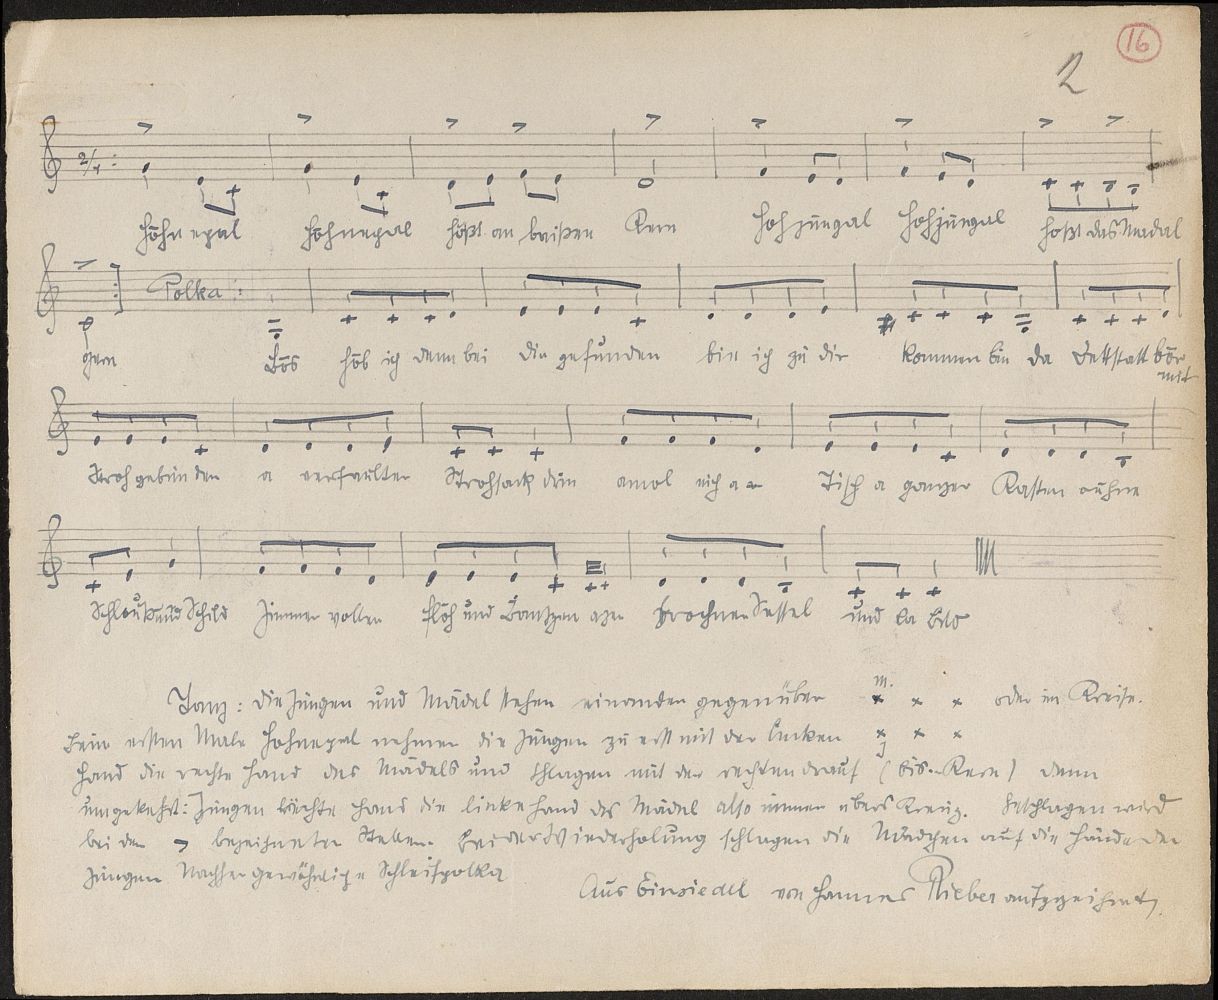 16
2
2/4
Höhnepal Höhnepal hößt an beißen Kern Hohjungal Hohjungal hoßt das Madal
gern Polka: Bos hob ich denn bei die gefunden bin ich zu dir kommen bin da Bettstatt bör mit
Stroh gebunden a verfaulter Strohsack drin amol nich a Tisch a ganzer Kasten ouhne
Schlouß und Schild Zimmer voller Flöh und Bantzen azer brochner Sessel und ka Bild
Tanz: Die Jungen und Mädel stehen einander gegenüber m. x x x oder im Kreise.
Beim ersten Male Hohnepal nehmen die Jungen zu erst mit der Linken x x x
J
Hand die rechte Hand des Mädels und schlagen mit der rechten drauf (bis.. Kern) dann
umgekehrt: Jungen rechte Hand die linke Hand des Mädel also immer übers Kreuz. Geschlagen wird
bei den > bezeichneten Stellen. Bei der Wiederholung schlagen die Mädchen auf die Hände der
Jungen Nachher gewöhnliche Schleifpolka
Aus Einsiedel von Hannes aufgezeichnet.